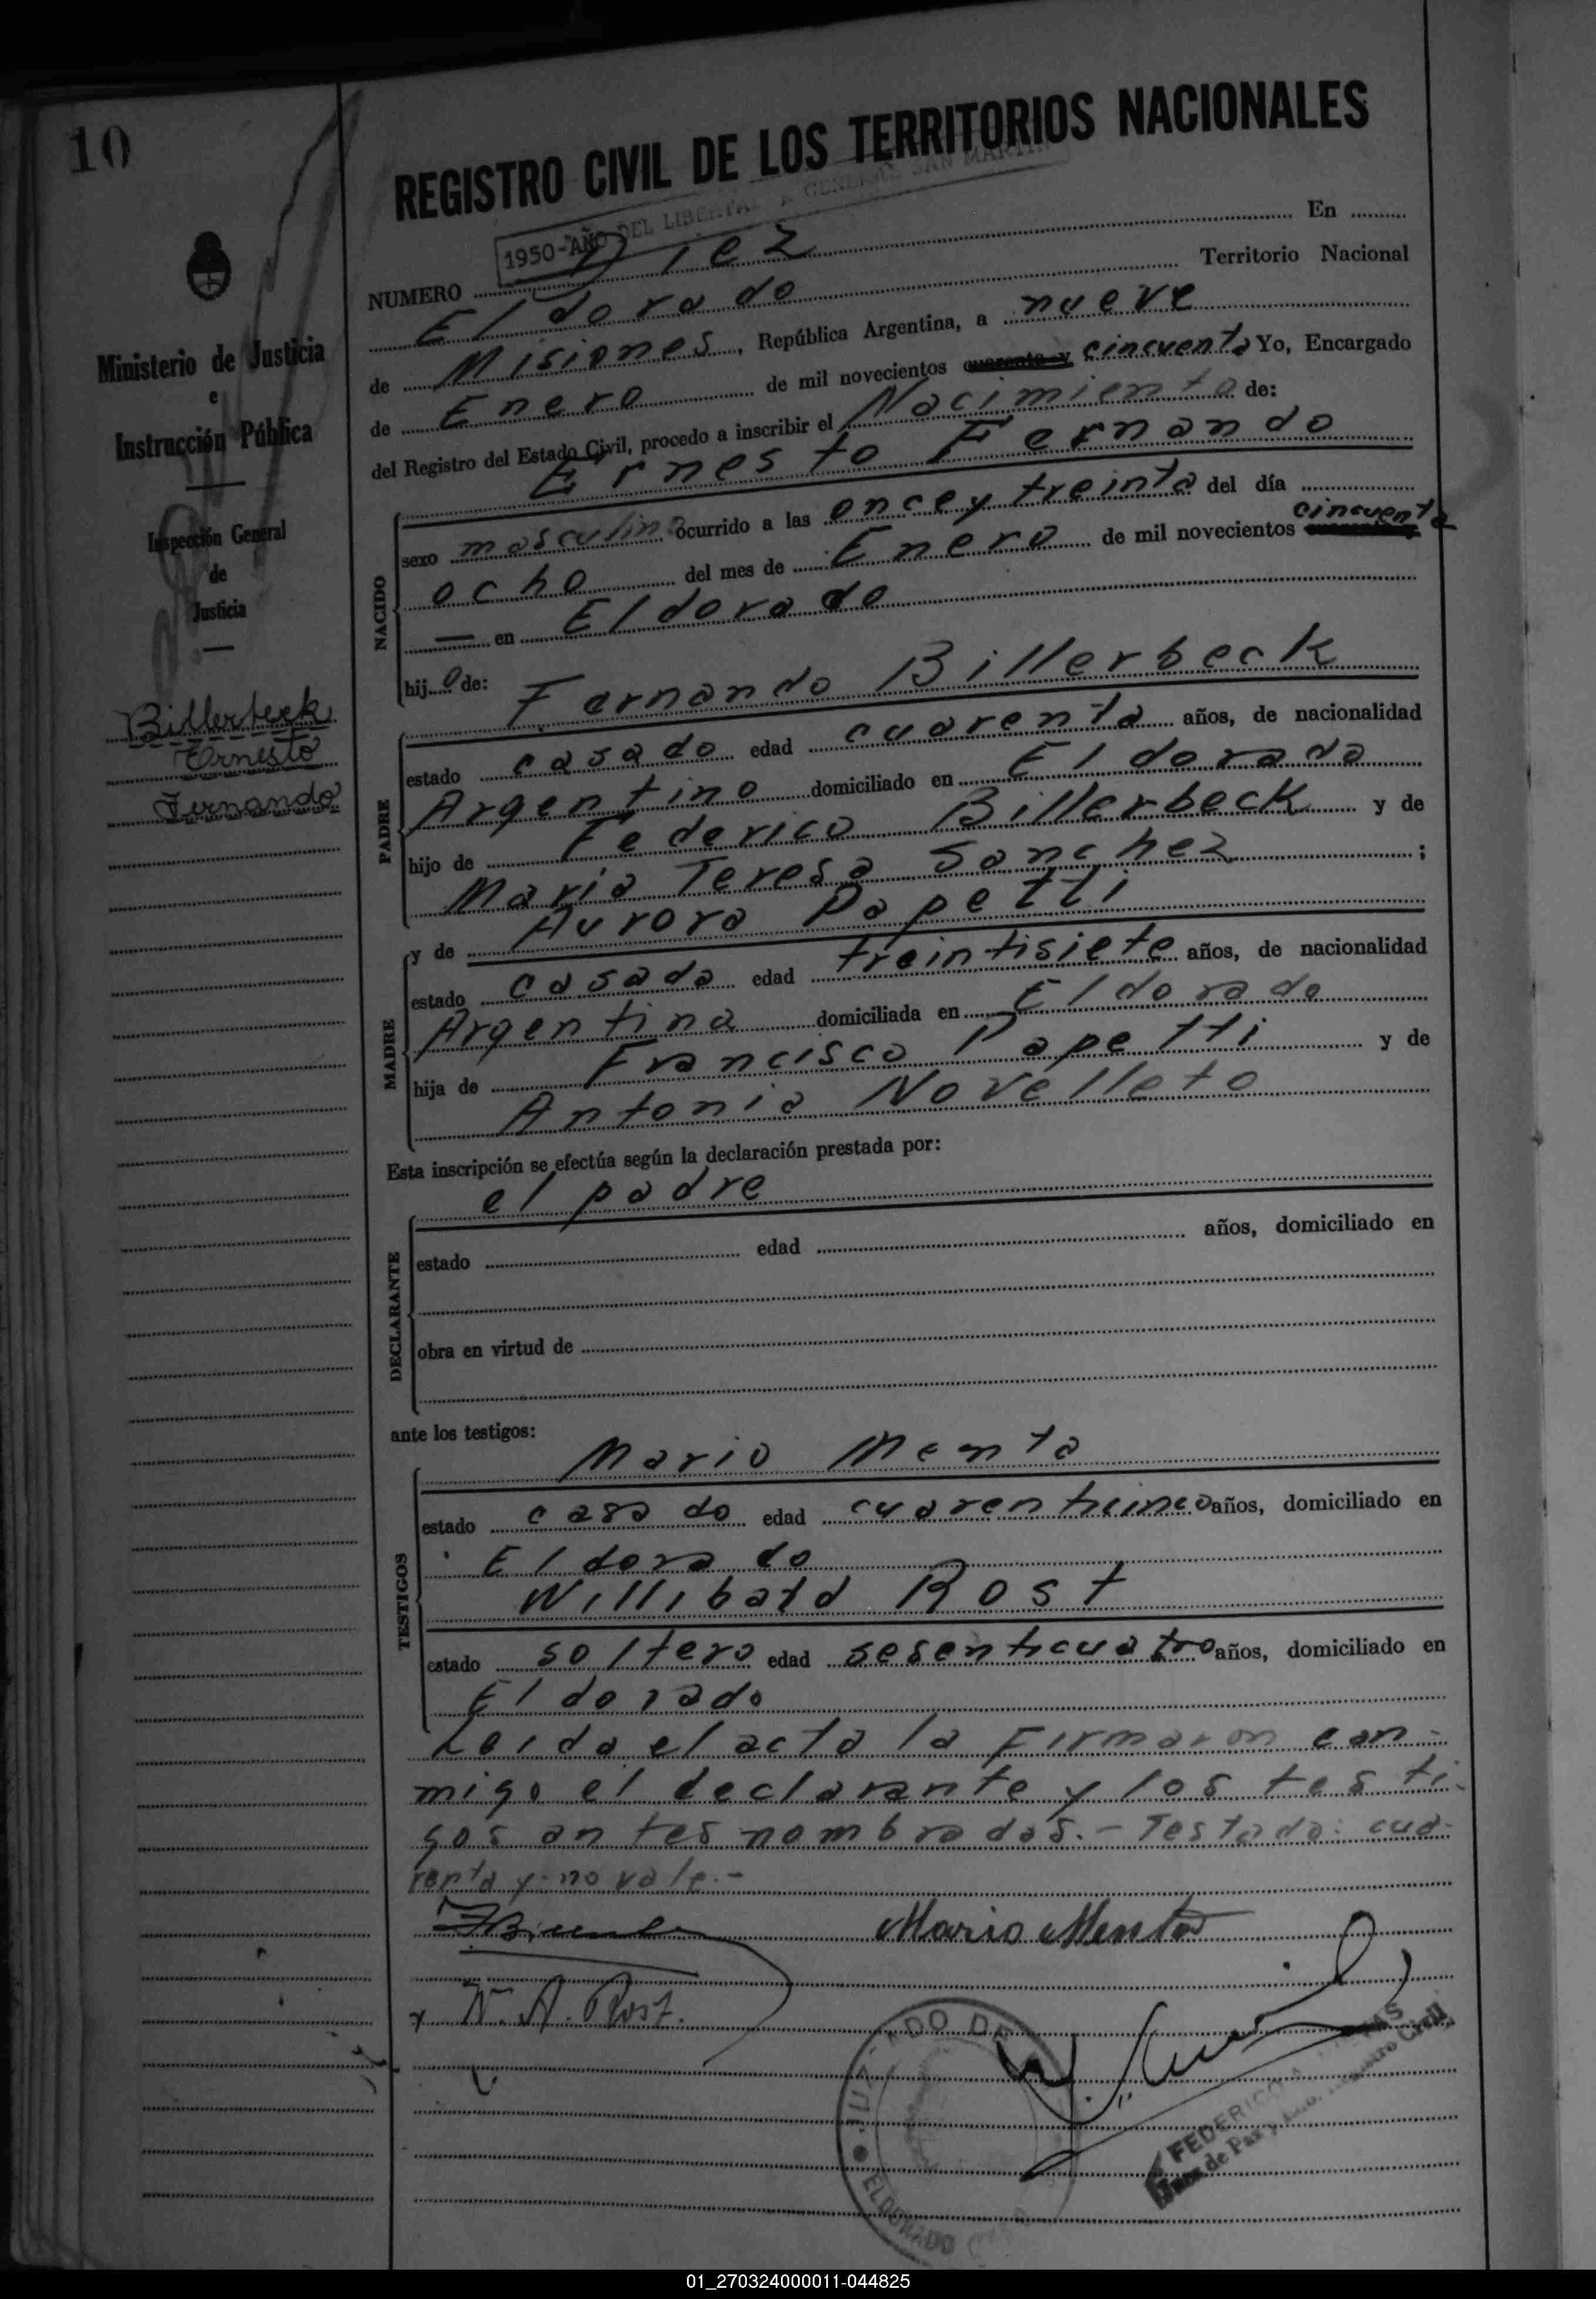 10
REGISTRO CIVIL DE LOS TERRITORIOS NACIONALES
1950-AÑO DEL LIBERTADOR GENERAL SAN MARTIN
NUMERO Diez En
Eldorado Territorio Nacional
de Misiones, República Argentina, a nueve
de Enero de mil novecientos cuarenta y cincuenta Yo, Encargado
del Registro del Estado Civil, procedo a inscribir el Nacimiento de:
Ernesto Fernando
NACIDO
sexo masculino ocurrido a las once y treinta del día
ocho del mes de Enero de mil novecientos cincuenta
— en Eldorado
hijo de: Fernando Billerbeck
PADRE
estado casado edad cuarenta años, de nacionalidad
Argentino domiciliado en Eldorado
hijo de Federico Billerbeck y de
Maria Teresa Sanchez ;
y de Aurora Papetti
MADRE
estado casada edad treintisiete años, de nacionalidad
Argentina domiciliada en Eldorado
hija de Francisco Papetti y de
Antonia Novelleto
Esta inscripción se efectúa según la declaración prestada por:
el padre
DECLARANTE
estado edad años, domiciliado en
obra en virtud de
ante los testigos:
Mario Menta
TESTIGOS
estado casado edad cuarenticinco años, domiciliado en
Eldorado
Willibald Rost
estado soltero edad sesenticuatro años, domiciliado en
Eldorado
Leida el acta la Firmaron con-
migo el declarante y los testi-
gos antes nombrados.- Testado: cua-
renta y: no vale.-
Mario Menta
W. A. Rost.
JUZGADO DE
ELDORADO
FEDERICO A.
Juez de Paz y Enc. Registro Civil
Ministerio de Justicia
e
Instrucción Pública
Inspección General
de
Justicia
Billerbeck
Ernesto
Fernando
01_270324000011-044825